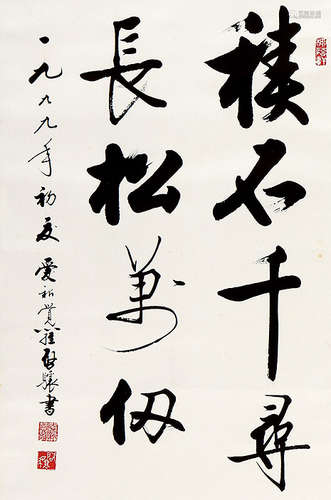 積石千尋
長松萬仞
一九九九年初夏愛新覺羅啓驤書